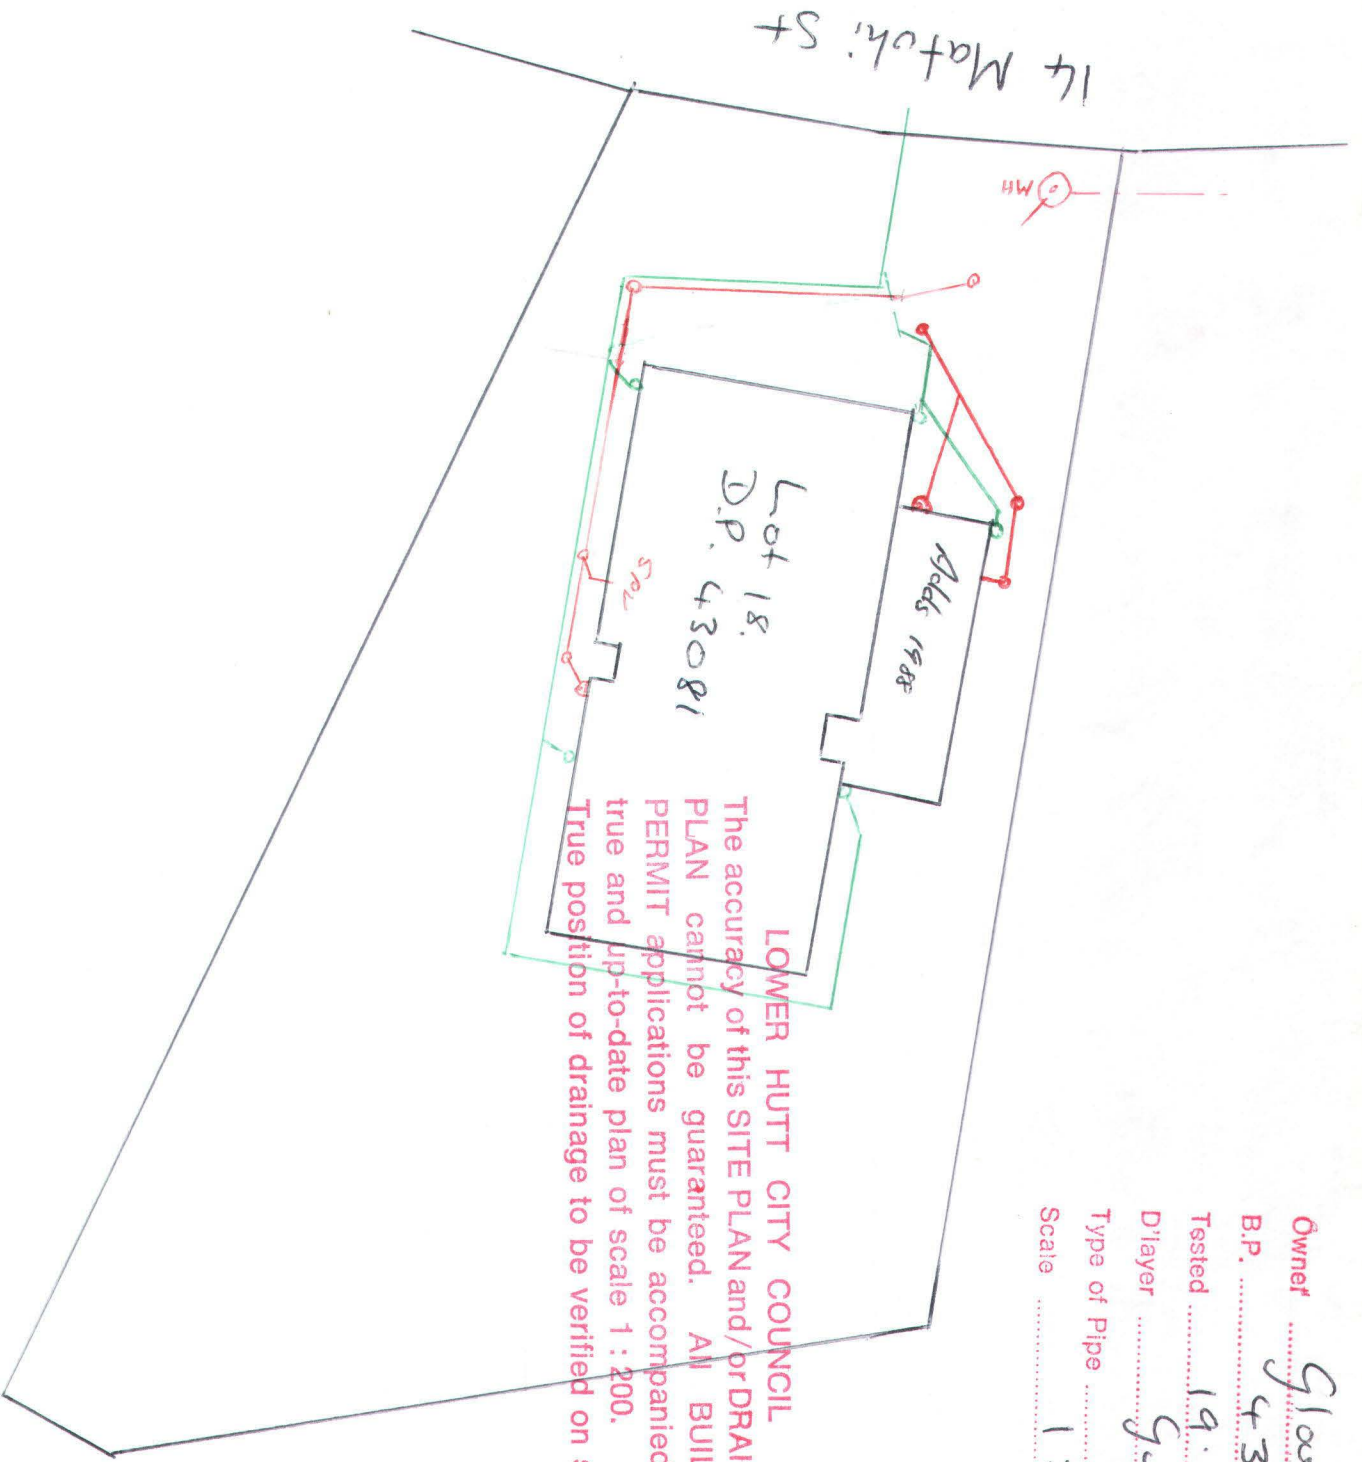 14 Matuhi St
MH
Lot 18.
D.P. 43081
Adds 1988
LOWER HUTT CITY COUNCIL
The accuracy of this SITE PLAN and/or DRAI
PLAN cannot be guaranteed. All BUIL
PERMIT applications must be accompanied
true and up-to-date plan of scale 1 : 200.
True position of drainage to be verified on s
Owner
B.P. 43
Tested 19.
D'layer
Type of Pipe
Scale 1